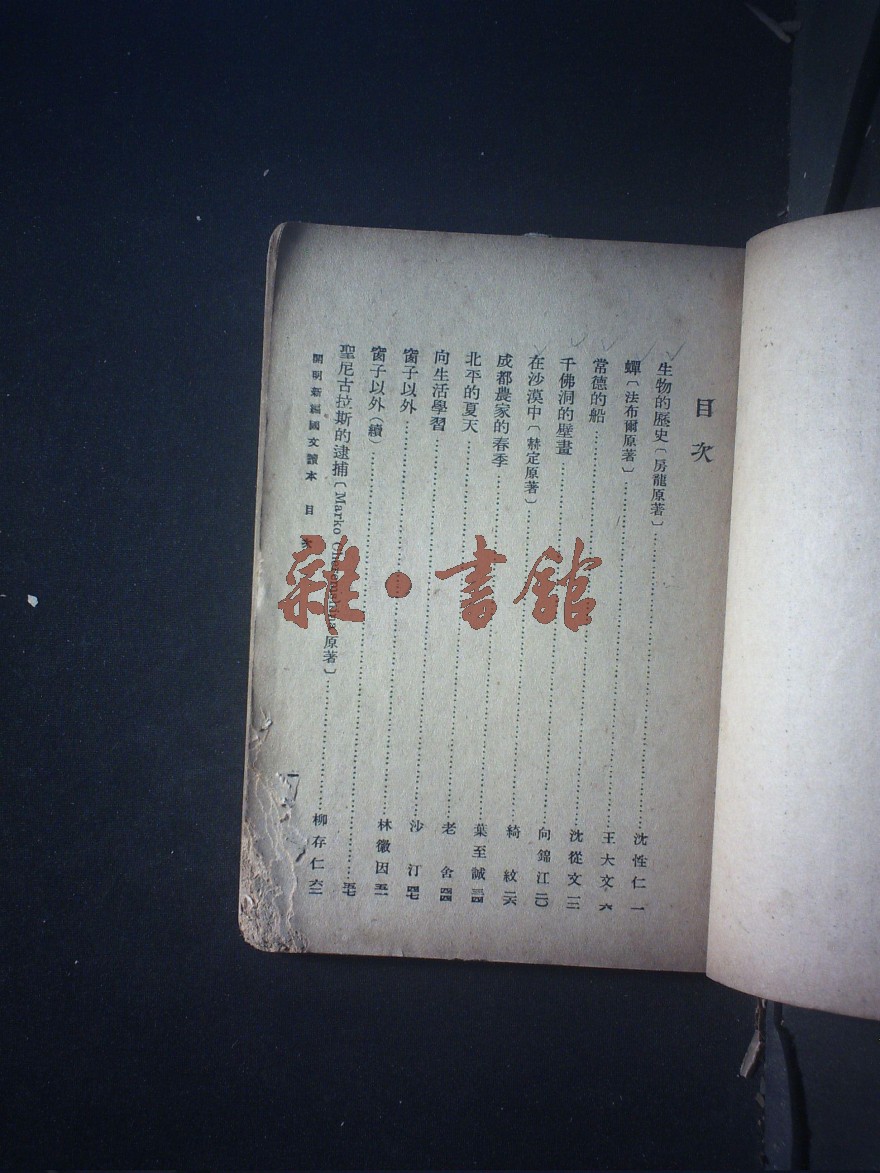 目次
生物的歷史〔房龍原著〕……沈性仁 一
蟬〔法布爾原著〕……王大文 六
常德的船……沈從文 一三
千佛洞的壁畫……向錦江 二〇
在沙漠中〔赫定原著〕……綺紋 二六
成都農家的春季……葉至誠 三四
北平的夏天……老舍 四四
向生活學習……沙汀 四七
窗子以外……林徽因 五一
窗子以外(續)……五七
聖尼古拉斯的逮捕〔Marko 原著〕……柳存仁 六二
開明新編國文讀本 目次
雜·書館